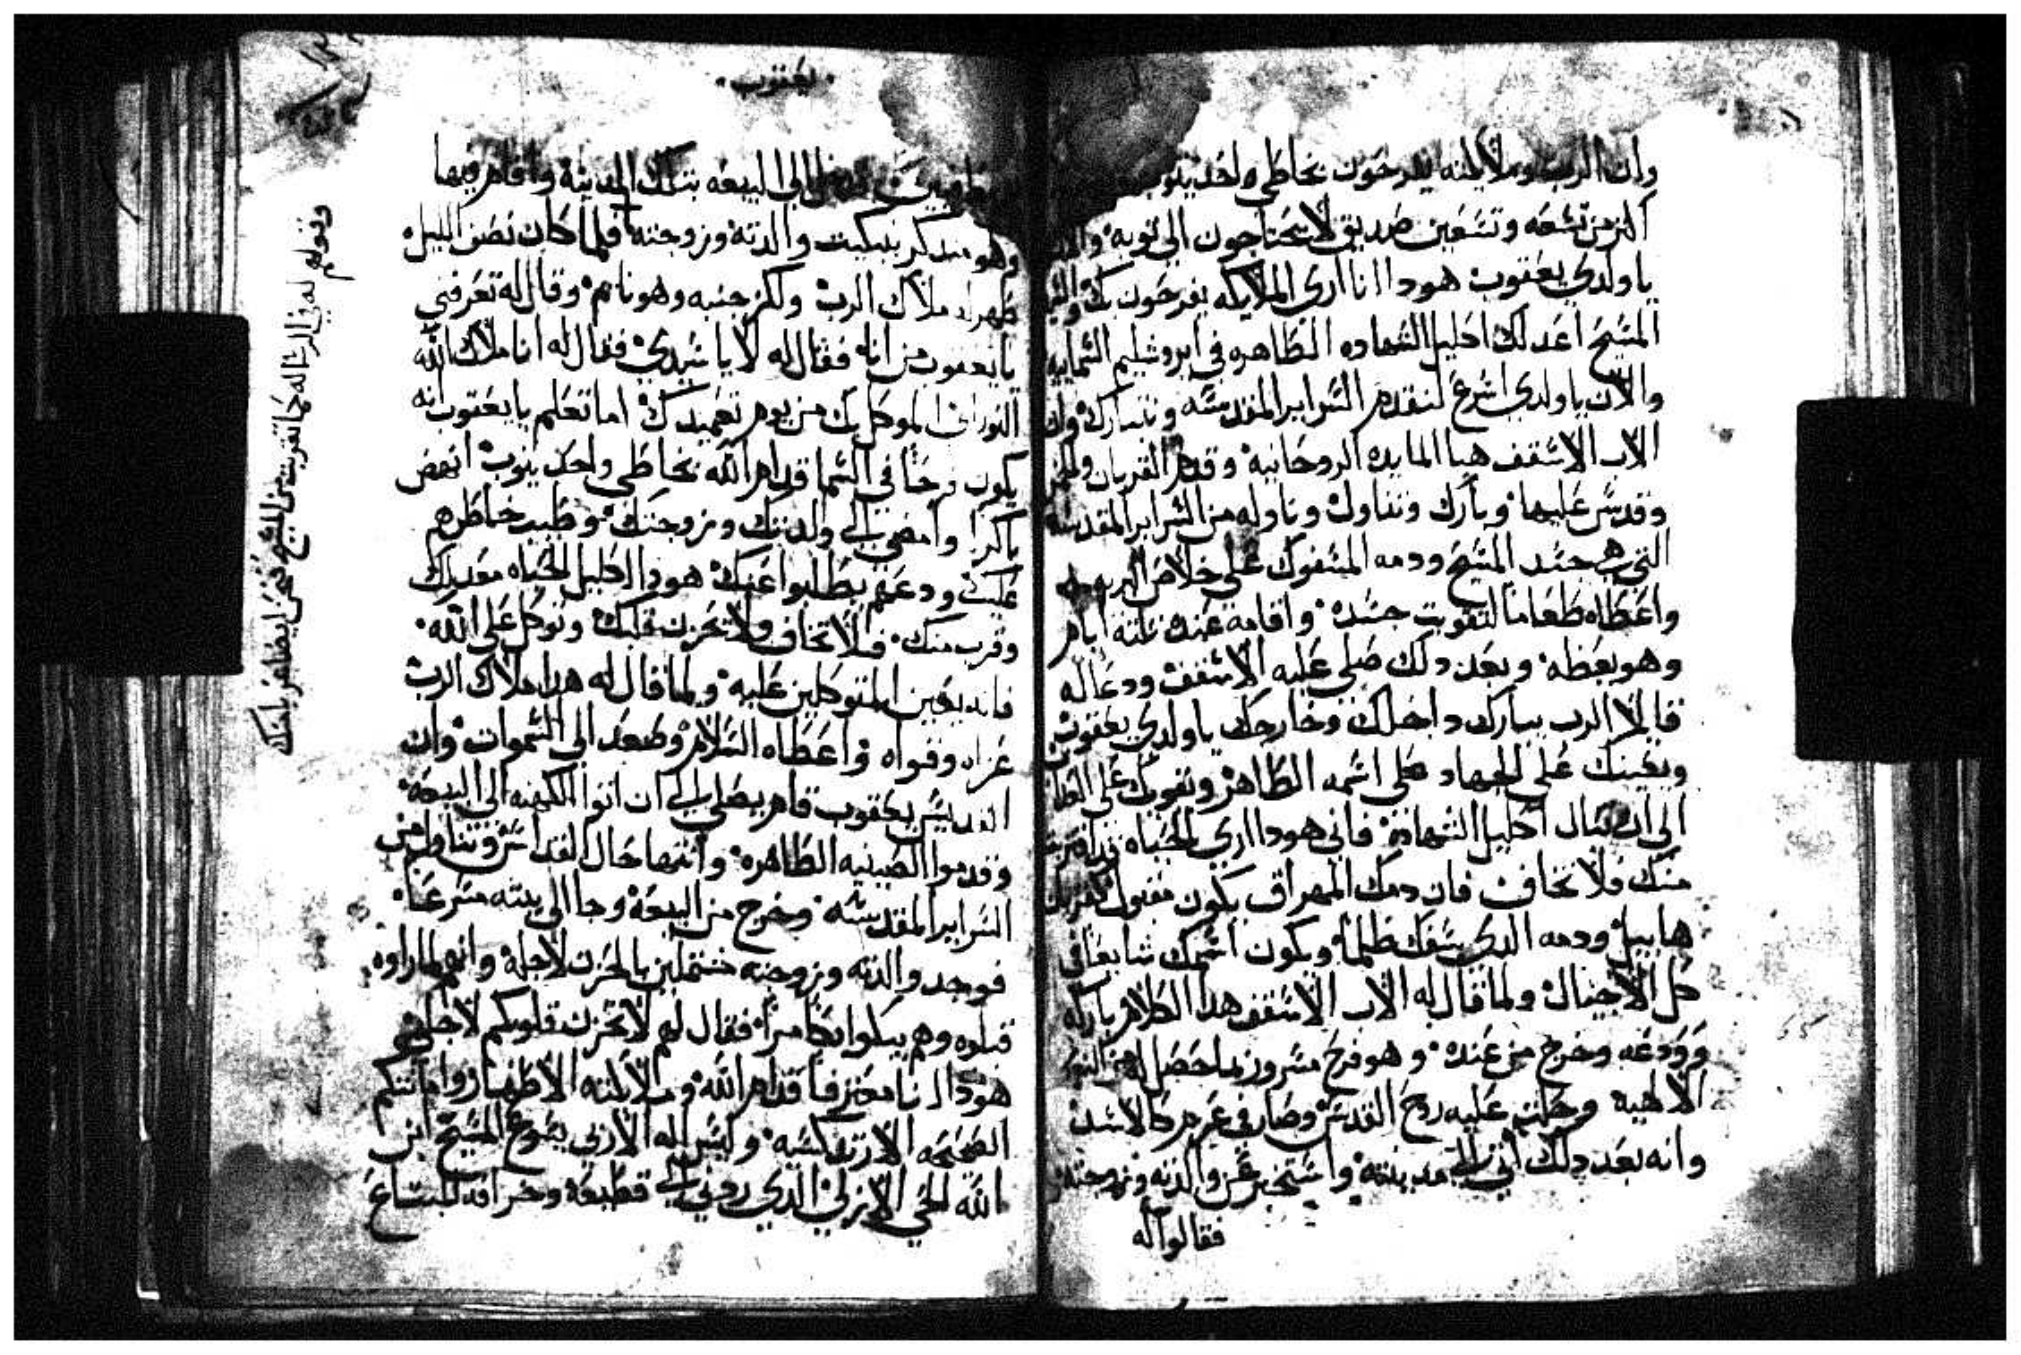 وان الرب وملايكته يفرحون بخاطي واحد يتوب
اكثر من تسعه وتسعين صديق لا يحتاجون الى توبه
يا ولدي يعقوب هودا انا ارى الملايكه يفرحون بك
المسيح اعد لك اكليل الشهاده الطاهره في ايروشليم السمايية
والان يا ولدي اسرع لنقدم السراير المقدسه ونتبارك وان
الاب الاسقف هيا المايده الروحانية وقدم القربان
وقدس عليها وبارك وتناول وناوله من السراير المقدسه
التي هي جسد المسيح ودمه المسفوك على خلاص
واعطاه طعاما لتقويت جسده واقامه عنده تلته ايام
وهو يعظه وبعد دلك صلى عليه الاسقف ودعا له
قايلا الرب يبارك داخلك وخارجك يا ولدي يعقوب
ويعينك على الجهاد على اسمه الطاهر ويقويك على
الى ان تنال اكليل الشهاده فاني هودا ارى الحياه قد اقتربت
منك فلا تخاف فان دمك المهراق يكون مقبول
هابيل ودمه الدي سفك ظلما ويكون اسمك شايعا في
كل الاجيال ولما قال له الاب الاسقف هدا الكلام باركه
وودعه وخرج من عنده وهو فرح مسرور بما حصل له من
الالاهية وحلت عليه روح القدس وصار في عزم كالاسد
وانه بعد دلك اتى الى مدينته واستخبر عن والدته وزوجته
فقالوا له
يعقوب
الى البيعه بتلك المدينة واقام فيها
وهو متدكر تبكيت والدته وزوجته فلما كان نصف الليل
ظهر له ملاك الرب ولكز جنبه وهو نايم وقال له تعرفني
يا يعقوب من انا فقال له لا يا سيدي فقال له انا ملاك الله
النوراني الموكل بك من يوم تعميدك اما تعلم يا يعقوب انه
يكون فرحا في السما قدام الله بخاطي واحد يتوب انهض
باكرا وامضي الى والدتك وزوجتك وطيب خاطرهم
عليك ودعهم يطلبوا عنك هودا اكليل الحياه معد لك
وقرب منك فلا تخاف ولا تحزن قلبك وتوكل على الله
فانه يعين المتوكلين عليه ولما قال له هدا ملاك الرب
عزاه وقواه واعطاه السلام وصعد الى السموات وان
القديس يعقوب قام يصلي الى ان اتوا الكهنه الى البيعه
وقدموا الصينيه الطاهره وانتها حال القداس وتناول من
السراير المقدسه وخرج من البيعه وجا الى بيته مسرعا
فوجد والدته وزوجته مشتملين بالحزن لاجله وانهم لما راوه
قبلوه وهم يبكوا بكا مرا فقال لهم لا تحزن قلوبكم لاجلي
هودا انا معترفا قدام الله وملايكته الاطهار وامانتكم
الصحيحه الارتدكسيه وليس اله الا ربي يسوع المسيح ابن
الله الحي الازلي الدي ردني الى قطيعه وخرافه